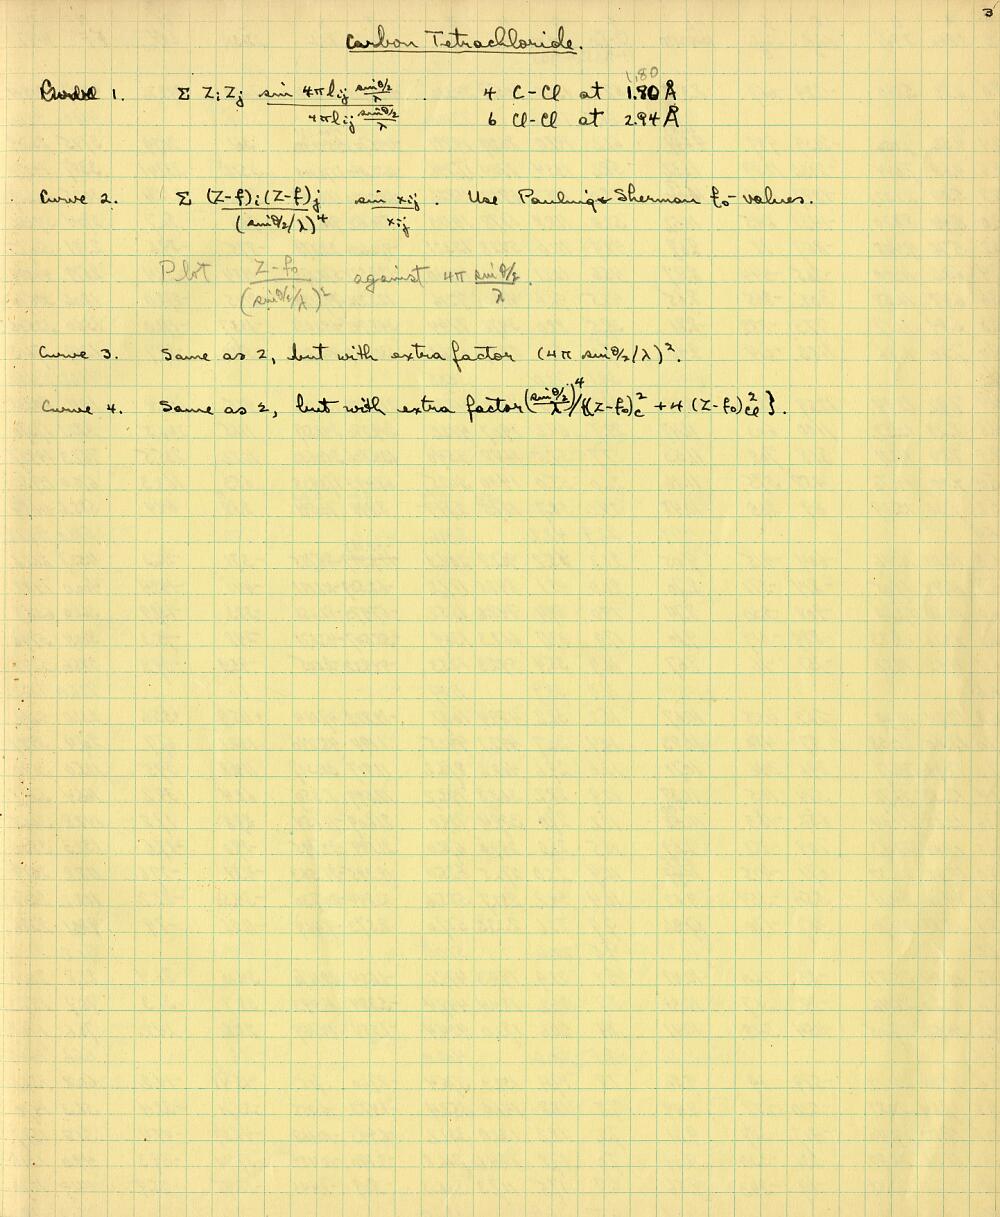 3
Carbon Tetrachloride.
1.80
Curve 1. Σ ZiZj sin 4πlij sinθ/2/λ / 4πlij sinθ/2/λ . 4 C-Cl at 1.80 Å
6 Cl-Cl at 2.94 Å
Curve 2. Σ (Z-f)i(Z-f)j / (sinθ/2/λ)^4 sin xij / xij . Use Pauling & Sherman f0-values.
Plot Z-f0 / (sinθ/2/λ)^2 against 4π sinθ/2 / λ .
Curve 3. Same as 2, but with extra factor (4π sinθ/2/λ)^2.
Curve 4. Same as 2, but with extra factor (sinθ/2 / λ)^4/{(Z-f0)^2_C + 4 (Z-f0)^2_Cl}.